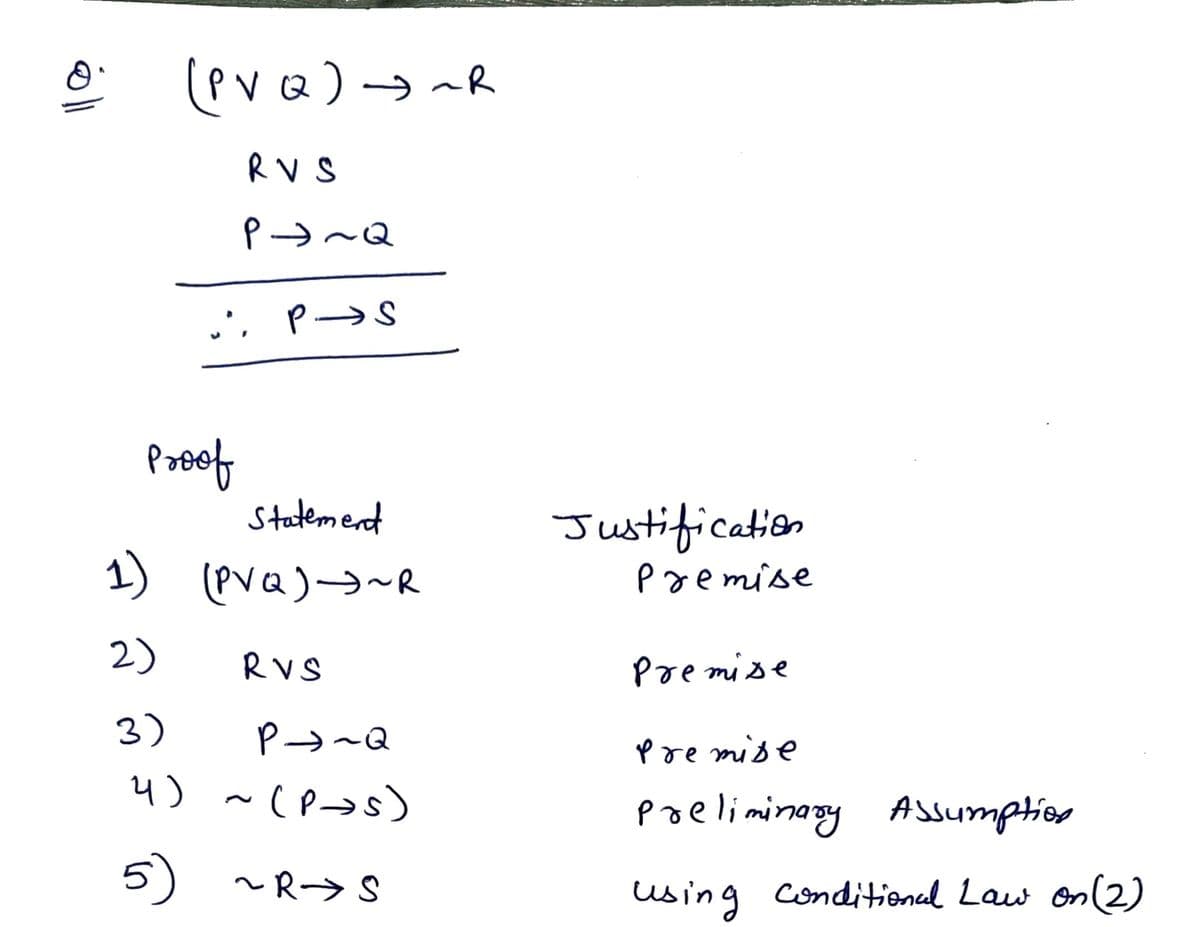 Q. (P∨Q)→~R
R∨S
P→~Q
∴ P→S
Proof
Statement Justification
1) (P∨Q)→~R Premise
2) R∨S Premise
3) P→~Q Premise
4) ~(P→S) Preliminary Assumption
5) ~R→S using Conditional Law on(2)